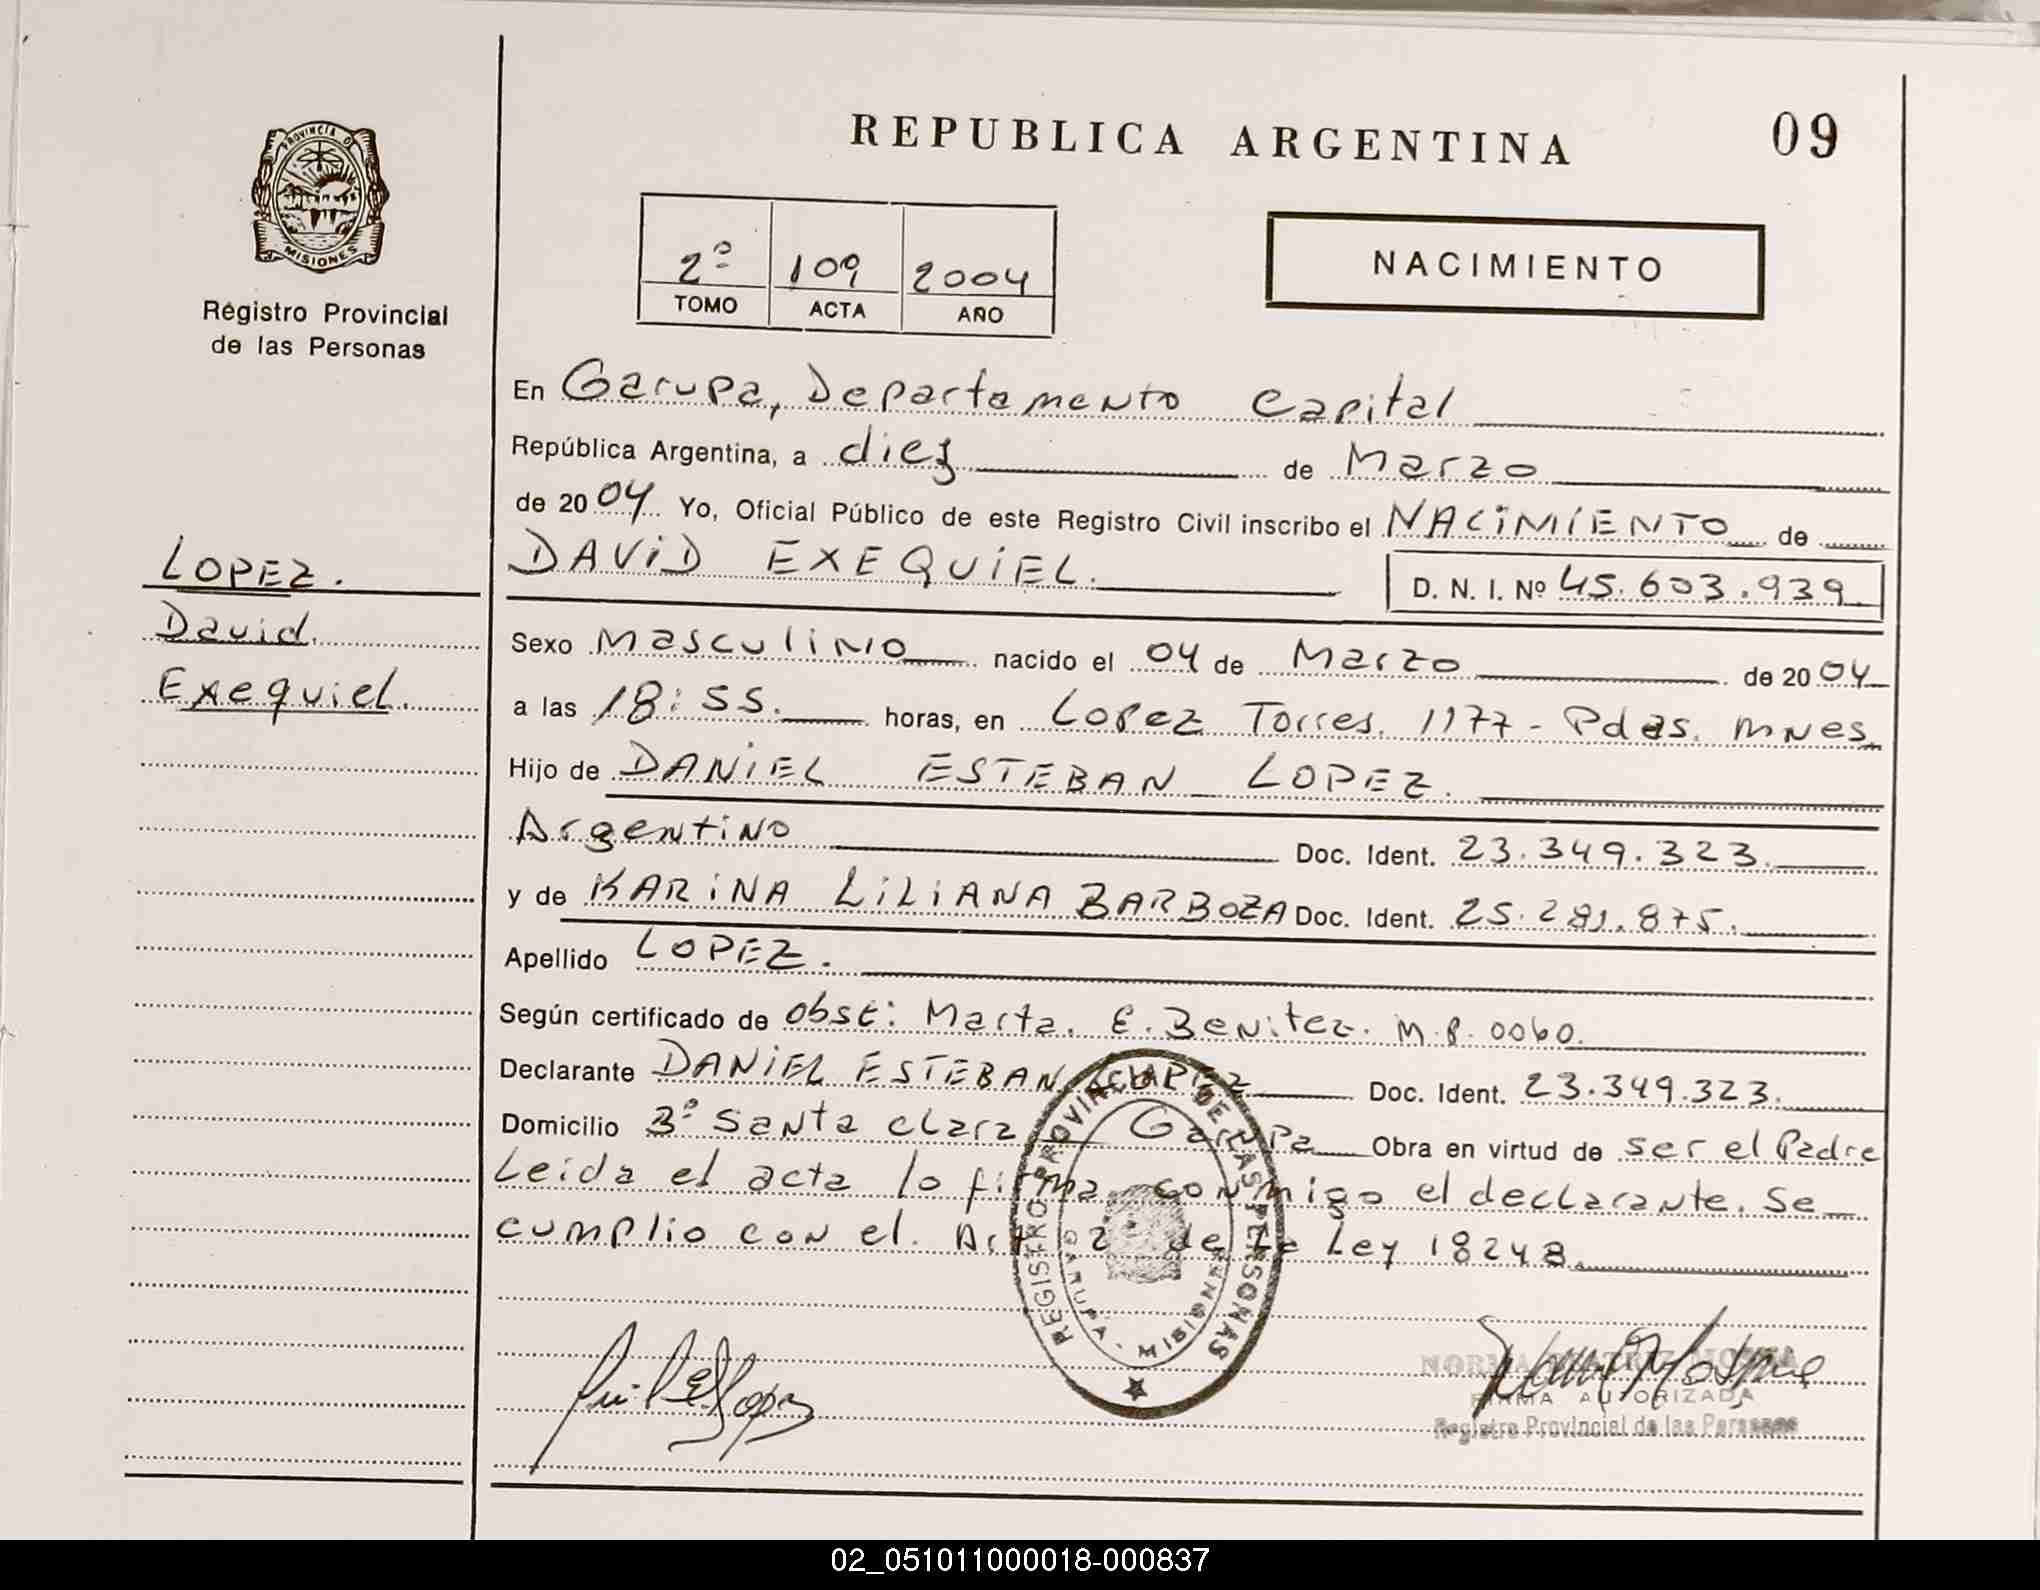 PROVINCIA DE
MISIONES
Registro Provincial
de las Personas
LOPEZ.
David.
Exequiel.
REPUBLICA ARGENTINA 09
2º 109 2004
TOMO ACTA AÑO
NACIMIENTO
En Garupa, Departamento Capital
República Argentina, a diez de Marzo
de 2004 Yo, Oficial Público de este Registro Civil inscribo el NACIMIENTO de
DAVID EXEQUIEL. D. N. I. Nº 45.603.939
Sexo Masculino nacido el 04 de Marzo de 2004
a las 18:55. horas, en Lopez Torres. 1177 - Pdas. mnes.
Hijo de DANIEL ESTEBAN LOPEZ.
Argentino Doc. Ident. 23.349.323.
y de KARINA LILIANA BARBOZA Doc. Ident. 25.281.875.
Apellido LOPEZ.
Según certificado de obst: Marta. E. Benitez. M.P. 0060.
Declarante DANIEL ESTEBAN LOPEZ Doc. Ident. 23.349.323.
Domicilio Bº Santa clara Garupa Obra en virtud de ser el Padre
Leida el acta lo firma conmigo el declarante. Se
cumplio con el. Art 2 de la Ley 18248.
REGISTRO PROVINCIAL DE LAS PERSONAS
GARUPA - MISIONES
NORMA BEATRIZ
FIRMA AUTORIZADA
Registro Provincial de las Personas
02_051011000018-000837